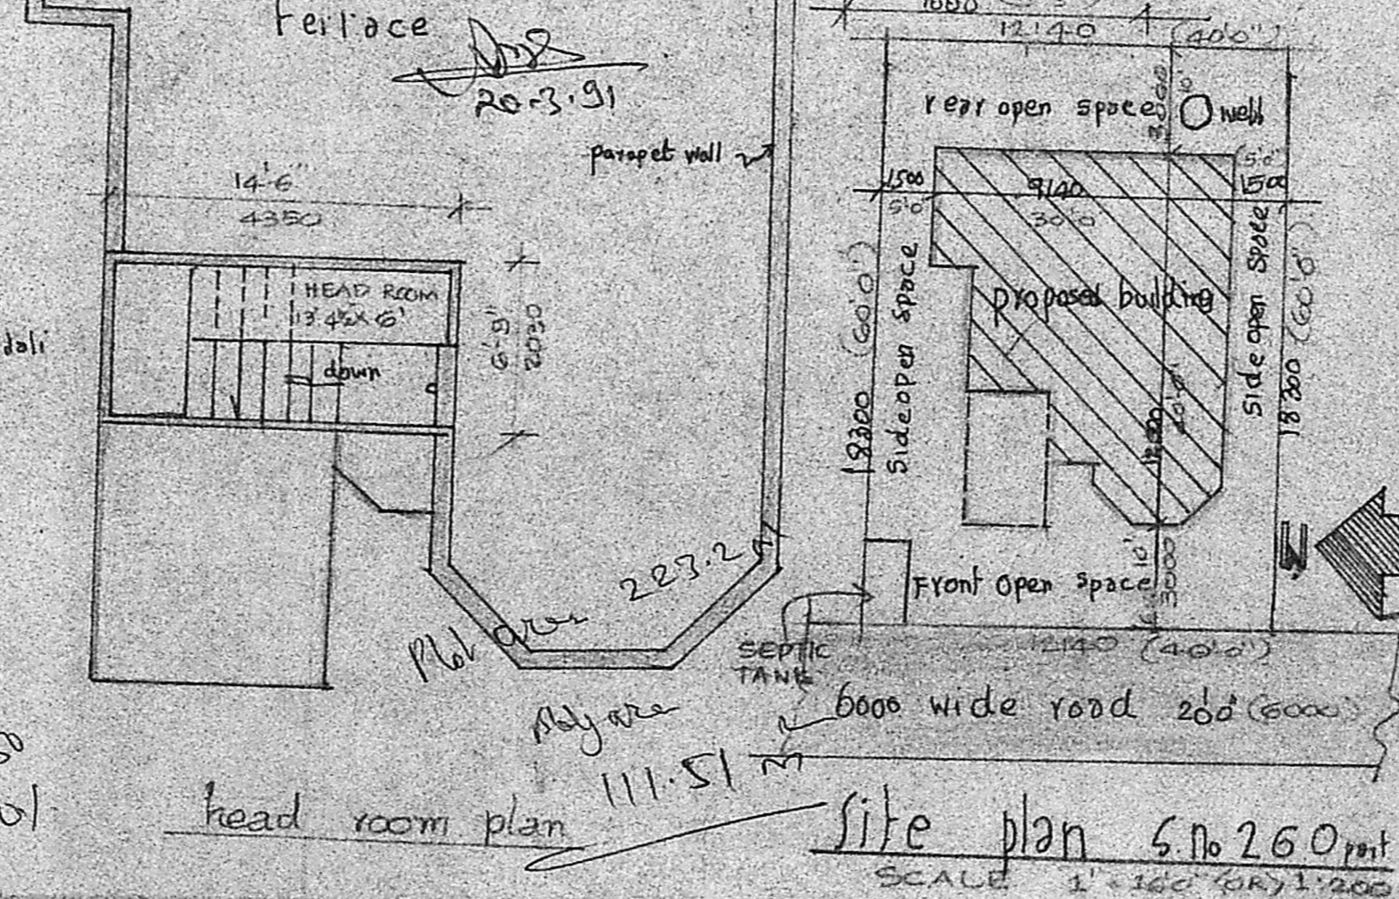 Terrace
20-3-91
parapet wall
14'-6"
4350
HEAD ROOM
13'4½"x 6'
down
6'-9"
2030
dali
Plot area 223.2 m
Plly area
111.51 m
head room plan
1000
12140 (40'0")
rear open space
3000
10'
well
1500
5'0"
9140
30'0
(5'0"
1500
18300 (60'0")
Side open Space
proposed building
12200
40'-0"
Side open Space
18300 (60'0")
N
Front open space
10'
3000
SEPTIC
TANK
12140 (40'0")
6000 wide road 20'0" (6000)
Site plan S.No 260 part
SCALE 1" = 16'0" (OR) 1:200